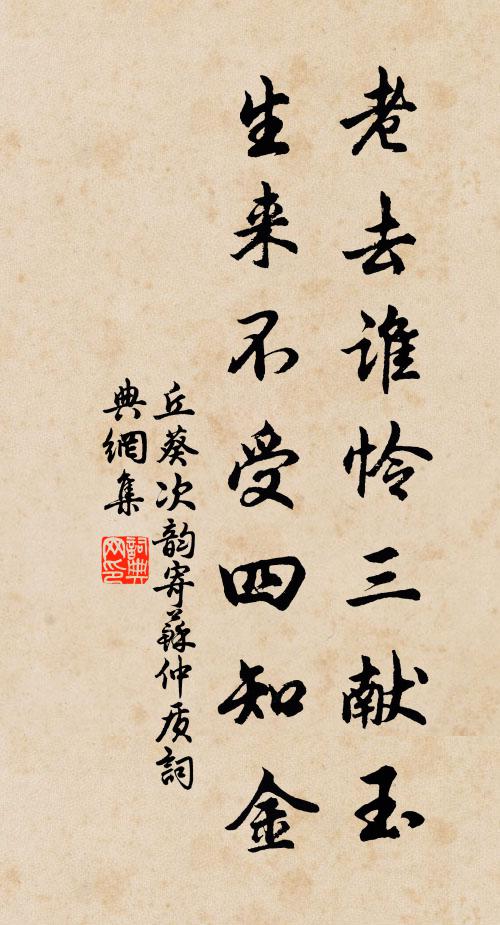 老去谁怜三献玉
生来不受四知金
丘葵次韵寄蘇仲质詞
典網集
詞典网印